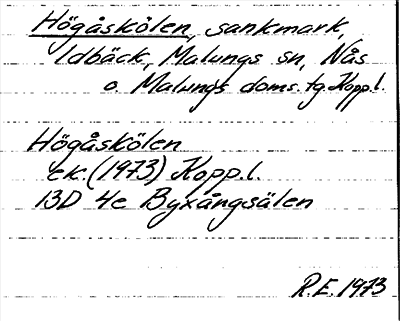 Högåskölen, sankmark,
Idbäck, Malungs sn, Nås
o. Malungs doms. tg. Kopp.l.
Högåskölen
ek. (1973) Kopp.l.
13D 4e Byxångsälen
R.E. 1973